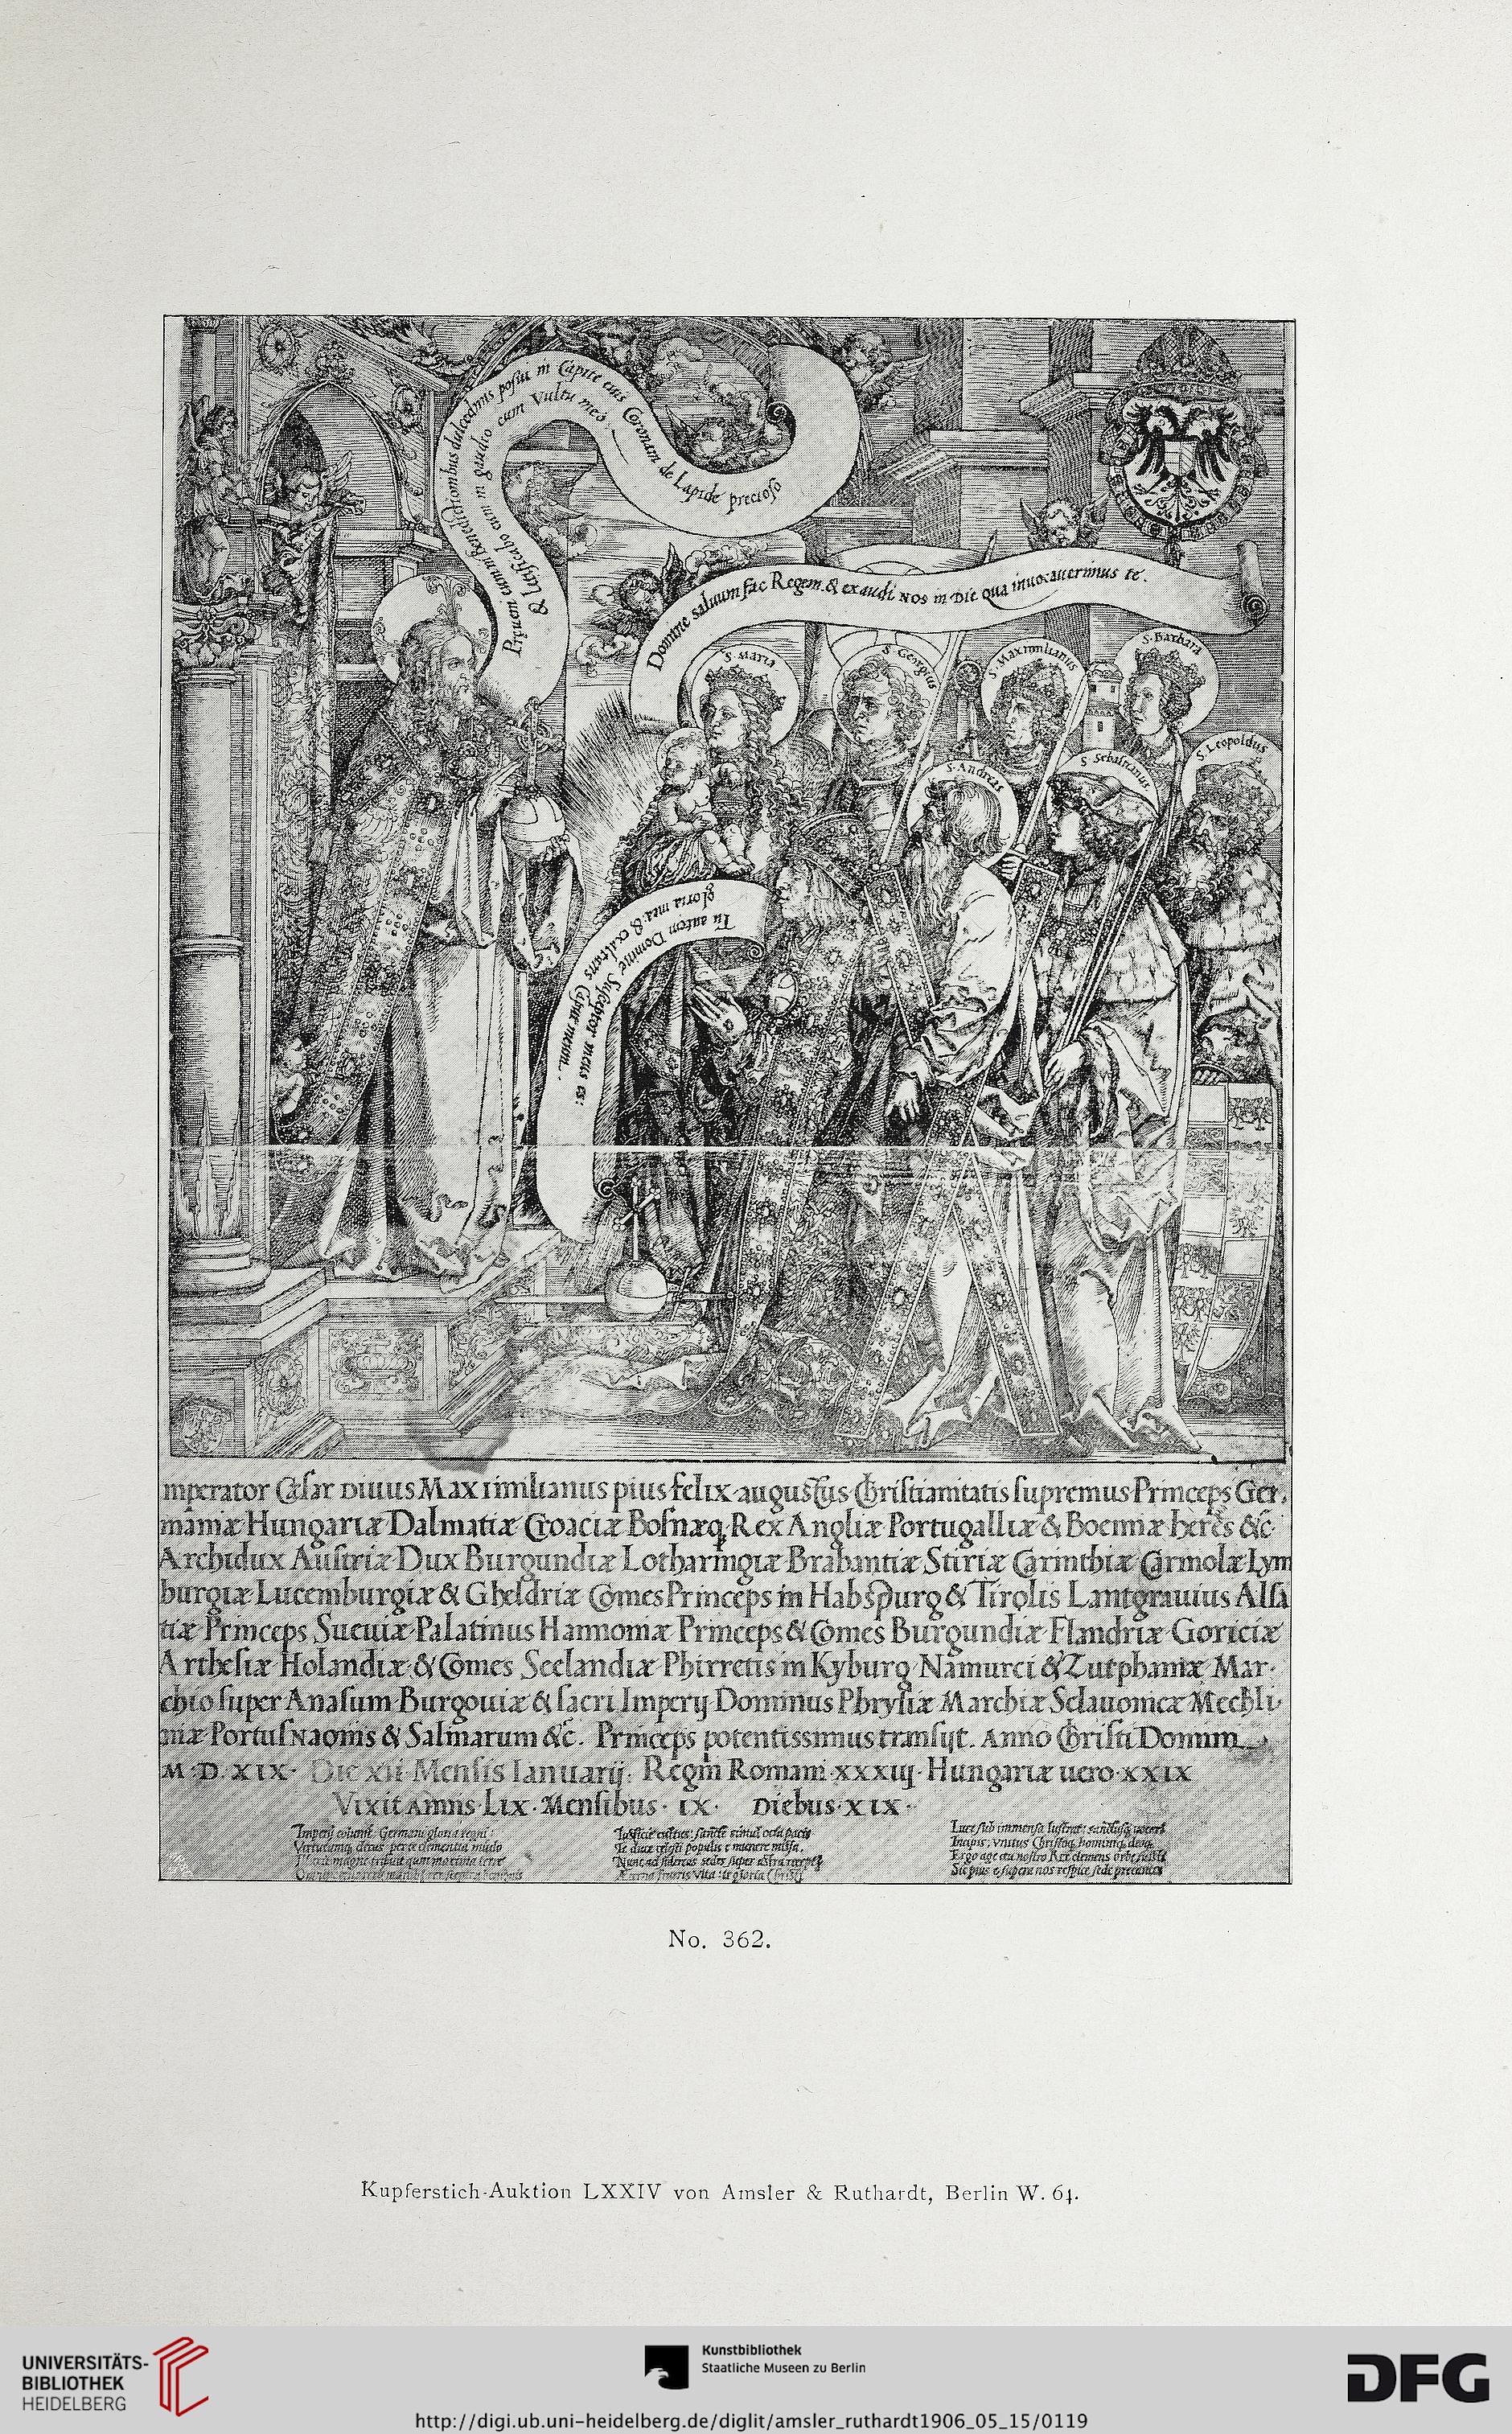 Preuenisti eum in Benedictionibus dulcedinis posuisti in Capite eius Coronam de Lapide precioso
& letificabis eum in gaudio cum Vultu meo.
Domine saluum fac Regem & exaudi nos in Die qua inuocauerimus te.
S. Maria
S. Georgius
S. Maximilianus
S. Barbara
S. Andreas
S. Sebastianus
S. Leopoldus
Tu autem Domine Susceptor meus es:
gloria mea & exaltans Caput meum.
mperator Cæsar DIUUS Maximilianus pius felix augustus Christianitatis supremus Princeps Ger.
maniæ Hungariæ Dalmatiæ Croaciæ Bosnæq Rex Angliæ Portugalliæ & Boemiæ heres &c
Archidux Austriæ Dux Burgundiæ Lotharingiæ Brabantiæ Stiriæ Carinthiæ Carniolæ Lym
burgiæ Lucemburgiæ & Gheldriæ Comes Princeps in Habspurg & Tirolis Lantgrauius Alsa
tiæ Princeps Sueuiæ Palatinus Hannoniæ Princeps & Comes Burgundiæ Flandriæ Goriciæ
Arthesiæ Holandiæ & Comes Seelandiæ Phirretis in Kyburg Namurci & Zutphaniæ Mar-
chio super Anasum Burgouiæ & sacri Imperij Dominus Phrysiæ Marchiæ Sclauonicæ Mechli
niæ Portusnaonis & Salinarum &c. Princeps potentissimus transijt. Anno Christi Domini
M.D.XIX. Die xii Mensis Ianuarij. Regni Romani xxxiij. Hungariæ uero xxix
Vixit Annis LIX. Mensibus IX. Diebus XIX.
Imperij columē, Germani gloria regni
Virtutumq decus
Iusticie cultus: sancte simul ocia pacis
Te duce
Nunc ad sidereas sedes super astra
Luce sub immensa lustrat
Incipis: vnitus Christoq hominiq deoq
Ergo age
Sic pius e supera nos respice sede precantes
No. 362.
Kupferstich-Auktion LXXIV von Amsler & Ruthardt, Berlin W. 64.
UNIVERSITÄTS-
BIBLIOTHEK
HEIDELBERG
Kunstbibliothek
Staatliche Museen zu Berlin
DFG
http://digi.ub.uni-heidelberg.de/diglit/amsler_ruthardt1906_05_15/0119